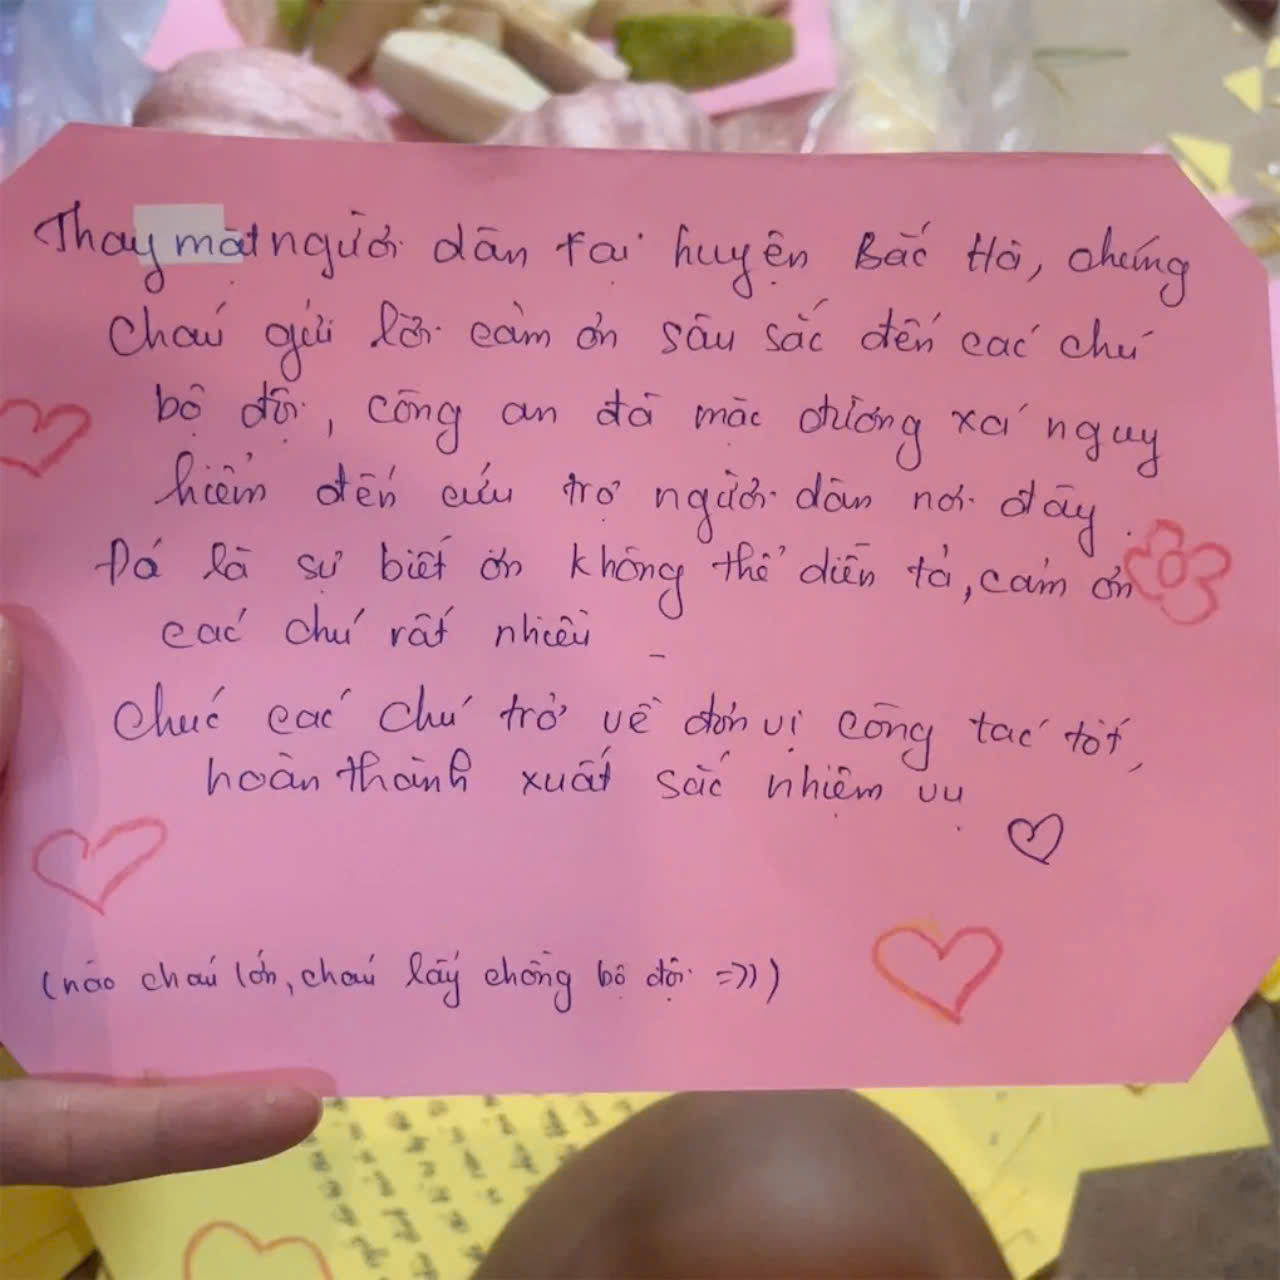 Thay mặt người dân tại huyện Bắc Hà, chúng
cháu gửi lời cảm ơn sâu sắc đến các chú
bộ đội, công an đã mặc đường xá nguy
hiểm đến cứu trợ người dân nơi đây.
Đó là sự biết ơn không thể diễn tả, cảm ơn
các chú rất nhiều
Chúc các chú trở về đơn vị công tác tốt,
hoàn thành xuất sắc nhiệm vụ
(nào cháu lớn, cháu lấy chồng bộ đội =)))